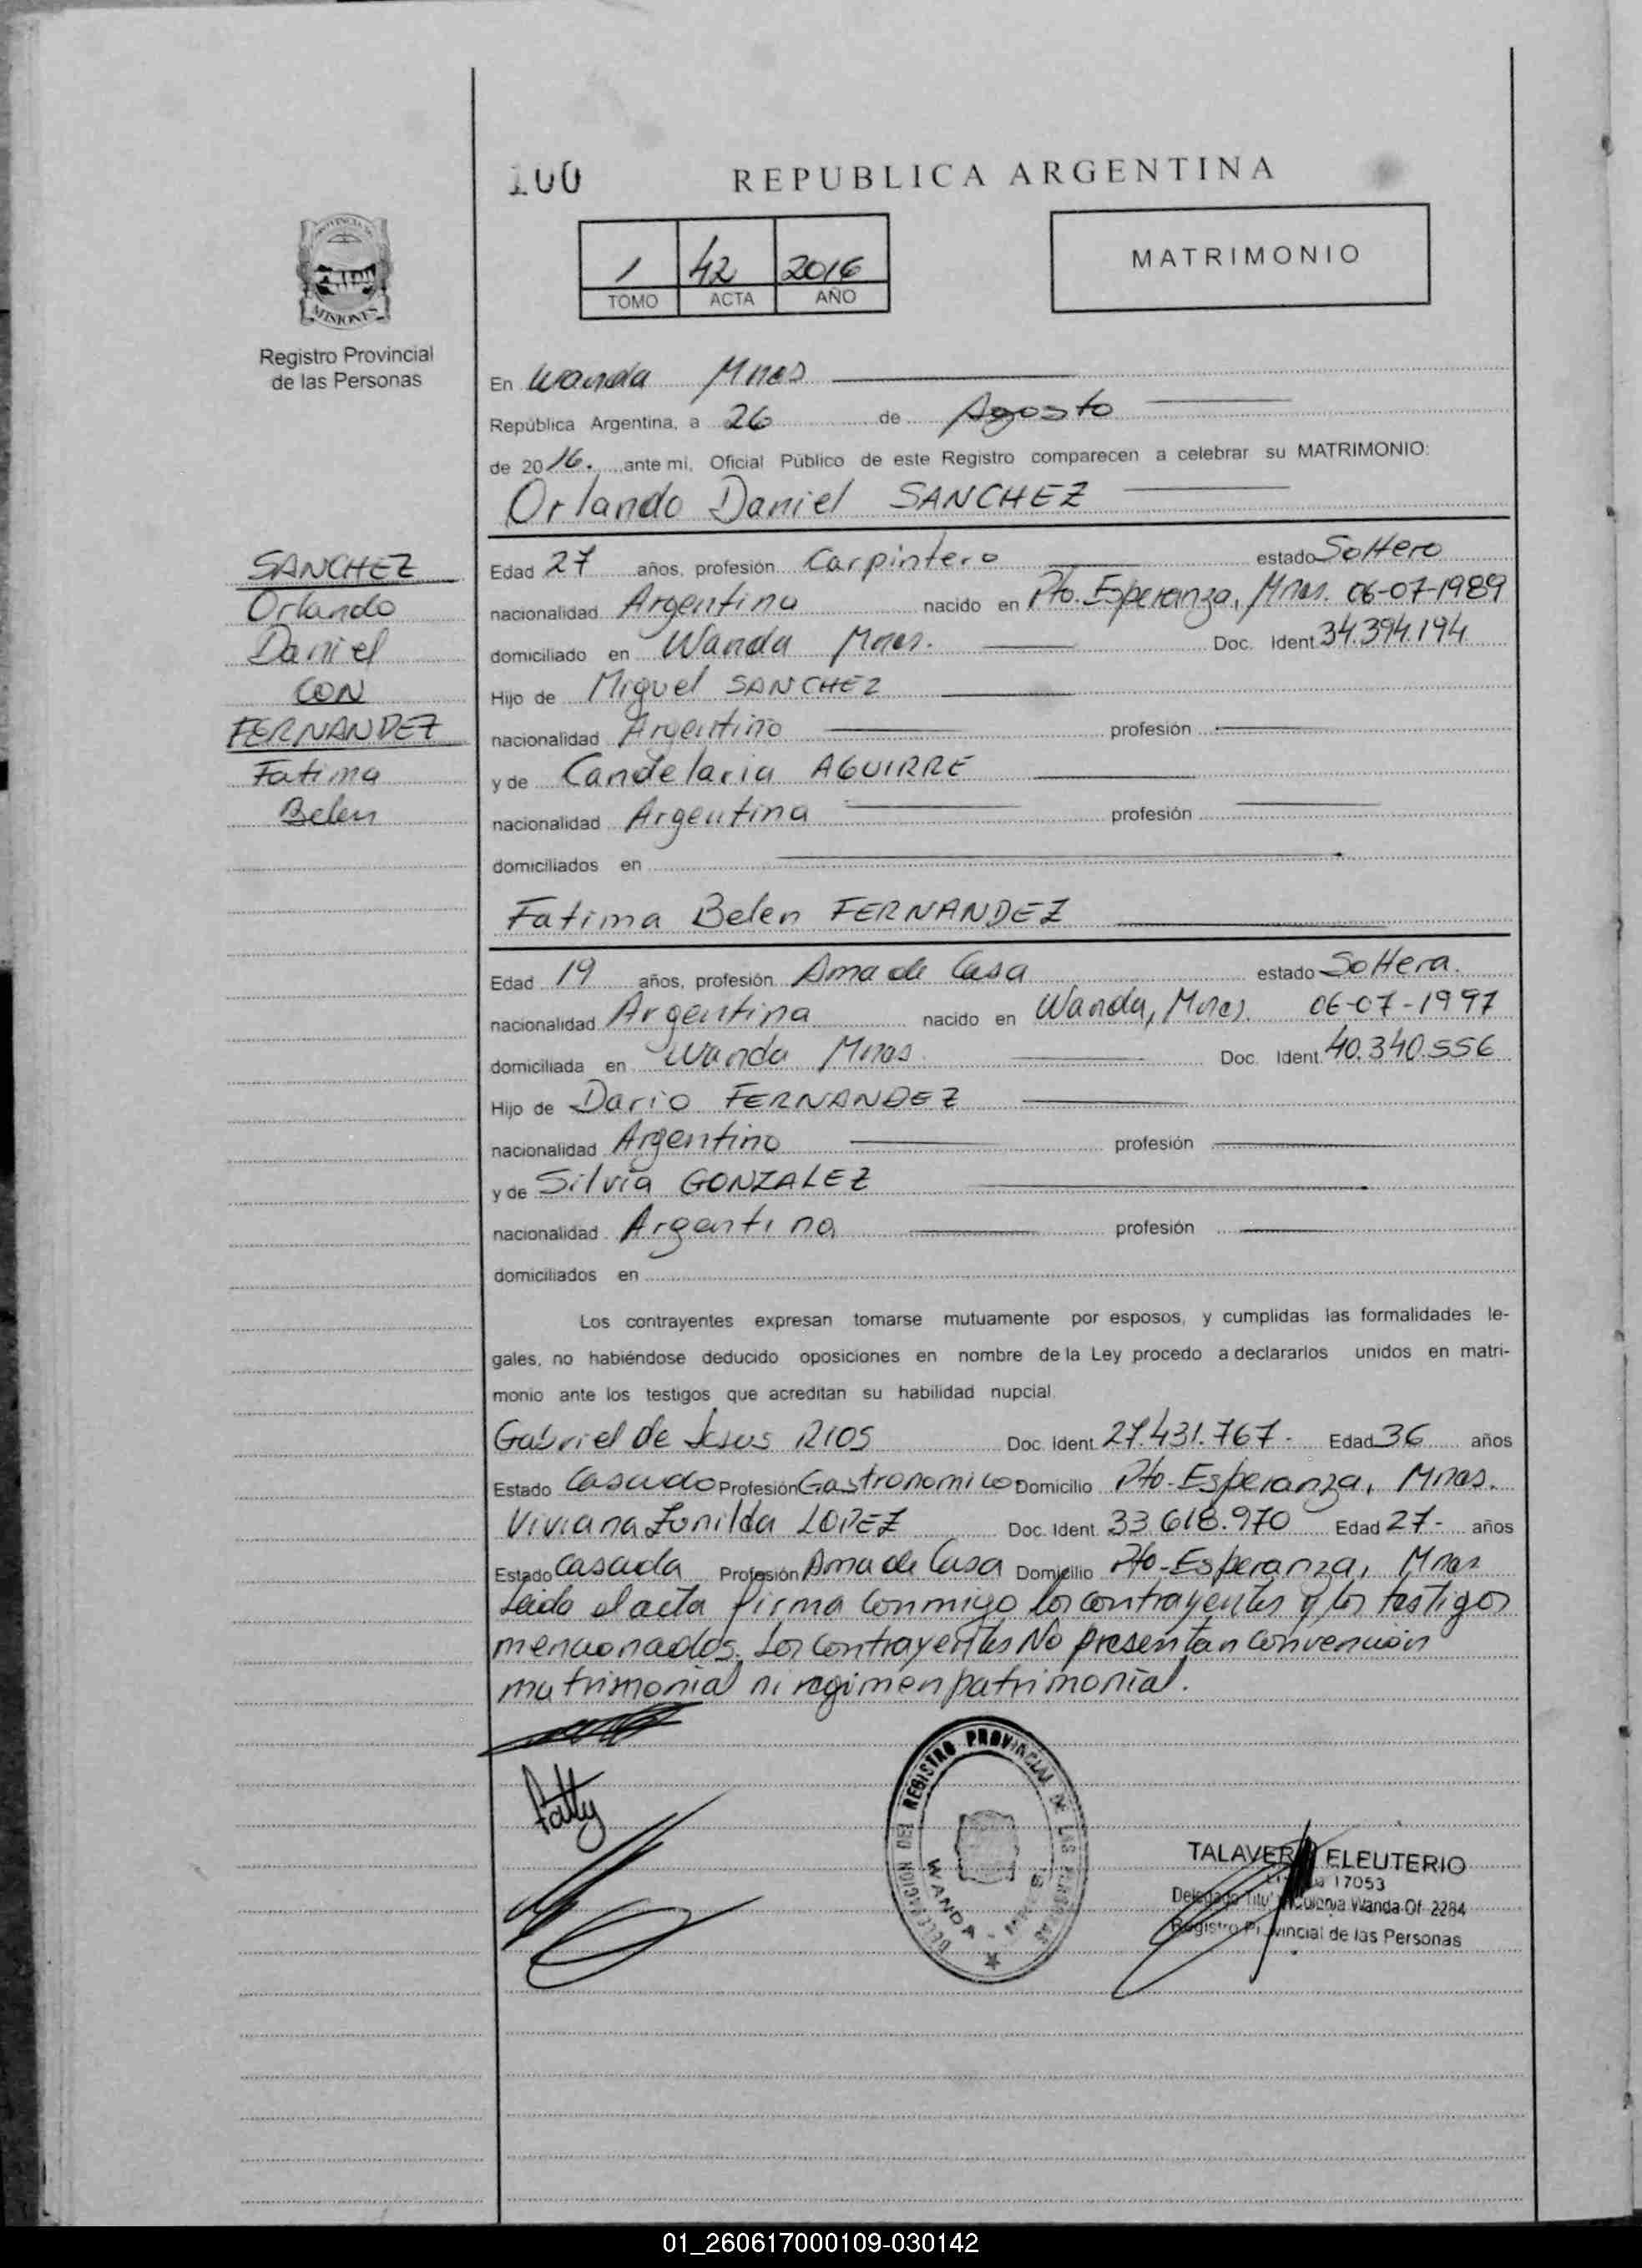 100
REPUBLICA ARGENTINA
1 42 2016
TOMO ACTA AÑO
MATRIMONIO
PROVINCIA DE
MISIONES
Registro Provincial
de las Personas
En Wanda Mnes
República Argentina, a 26 de Agosto
de 2016. ante mi, Oficial Público de este Registro comparecen a celebrar su MATRIMONIO:
Orlando Daniel SANCHEZ
SANCHEZ
Orlando
Daniel
CON
FERNANDEZ
Fatima
Belen
Edad 27 años, profesión Carpintero estado Soltero
nacionalidad Argentina nacido en Pto. Esperanza, Mnes. 06-07-1989
domiciliado en Wanda Mnes. Doc. Ident. 34.394.194
Hijo de Miguel SANCHEZ
nacionalidad Argentino profesión
y de Candelaria AGUIRRE
nacionalidad Argentina profesión
domiciliados en
Fatima Belen FERNANDEZ
Edad 19 años, profesión Ama de Casa estado Soltera.
nacionalidad Argentina nacido en Wanda, Mnes. 06-07-1997
domiciliada en Wanda Mnes. Doc. Ident. 40.340.556
Hijo de Dario FERNANDEZ
nacionalidad Argentino profesión
y de Silvia GONZALEZ
nacionalidad Argentina profesión
domiciliados en
Los contrayentes expresan tomarse mutuamente por esposos, y cumplidas las formalidades le-
gales, no habiéndose deducido oposiciones en nombre de la Ley procedo a declararlos unidos en matri-
monio ante los testigos que acreditan su habilidad nupcial.
Gabriel de Jesus RIOS Doc. Ident. 27.431.767- Edad 36 años
Estado Casado Profesión Gastronomico Domicilio Pto-Esperanza, Mnes.
Viviana Zunilda LOPEZ Doc. Ident. 33.618.970 Edad 27- años
Estado Casada Profesión Ama de Casa Domicilio Pto-Esperanza, Mnes
Leida el acta firma conmigo los contrayentes y los testigos
mencionados. Los contrayentes No presentan convención
matrimonial ni regimen patrimonial.
Patty
DELEGACION DEL REGISTRO PROVINCIAL DE LAS PERSONAS
WANDA - MNES
TALAVERA ELEUTERIO
17053
Delegado Titular Colonia Wanda Of. 2284
Registro Provincial de las Personas
01_260617000109-030142